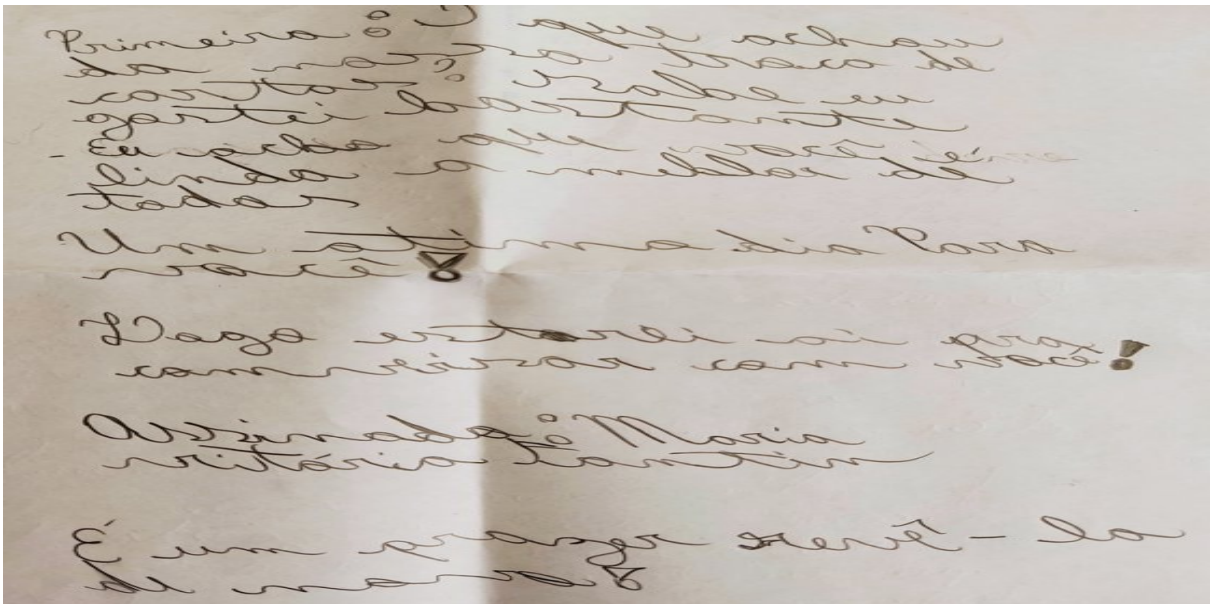 Primeira: O que achou
da nossa troca de
cartas? sabe eu
gostei bastante
- Eu acho que você é
linda a melhor de
todas
Um ótimo dia Para
você!
Logo estarei ai pra
conversar com você!
Assinado: Maria
vitória
É um prazer revê-la
de novo!